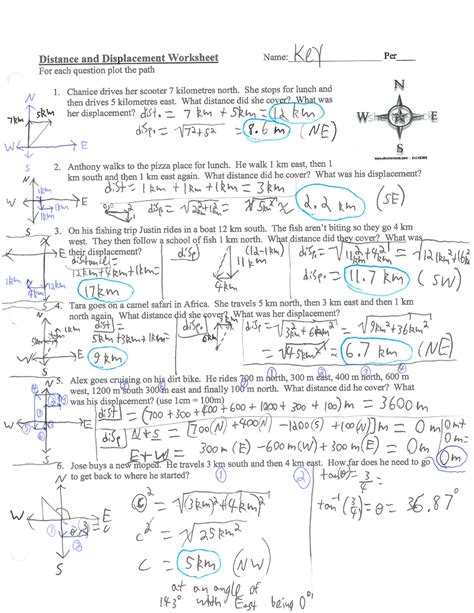 Distance and Displacement Worksheet Name: Key Per
For each question plot the path
N
1. Chanice drives her scooter 7 kilometres north. She stops for lunch and
then drives 5 kilometres east. What distance did she cover? What was
her displacement? dist. = 7 km + 5km = 12 km
disp. = √7²+5² = 8.6 m (NE)
7km 5km
W E
S
N
W E
S
2. Anthony walks to the pizza place for lunch. He walk 1 km east, then 1
km south and then 1 km east again. What distance did he cover? What was his displacement?
dist = 1km + 1km + 1km = 3km
2.2 km (SE)
3. On his fishing trip Justin rides in a boat 12 km south. The fish aren't biting so they go 4 km
west. They then follow a school of fish 1 km north. What distance did they cover? What was
their displacement?
12km + 4km + 1km =
17km
disp.
(12-1km)
11km
4km
disp. = 11.7 km (SW)
4. Tara goes on a camel safari in Africa. She travels 5 km north, then 3 km east and then 1 km
north again. What distance did she cover? What was her displacement?
dist =
5km + 3km + 1km =
9 km
disp.
= √9km²+36km²
= √45km² = 6.7 km (NE)
5. Alex goes cruising on his dirt bike. He rides 700 m north, 300 m east, 400 m north, 600 m
west, 1200 m south 300 m east and finally 100 m north. What distance did he cover? What
was his displacement? (use 1cm = 100m)
dist = (700 + 300 + 400 + 600 + 1200 + 300 + 100) m = 3600m
disp N + S = [700(N) + 400(N) - 1200(S) + 100(N)] m = 0m
E + W = 300m (E) - 600m(W) + 300m(E) = 0m
0m
6. Jose buys a new moped. He travels 3 km south and then 4 km east. How far does he need to go
to get back to where he started?
c² = √(3km)²+(4km)²
c² = √25km²
c = 5km (NW)
at an angle of
143° with East being 0°!
tan(θ) = 3/4
tan⁻¹(3/4) = θ = 36.87°